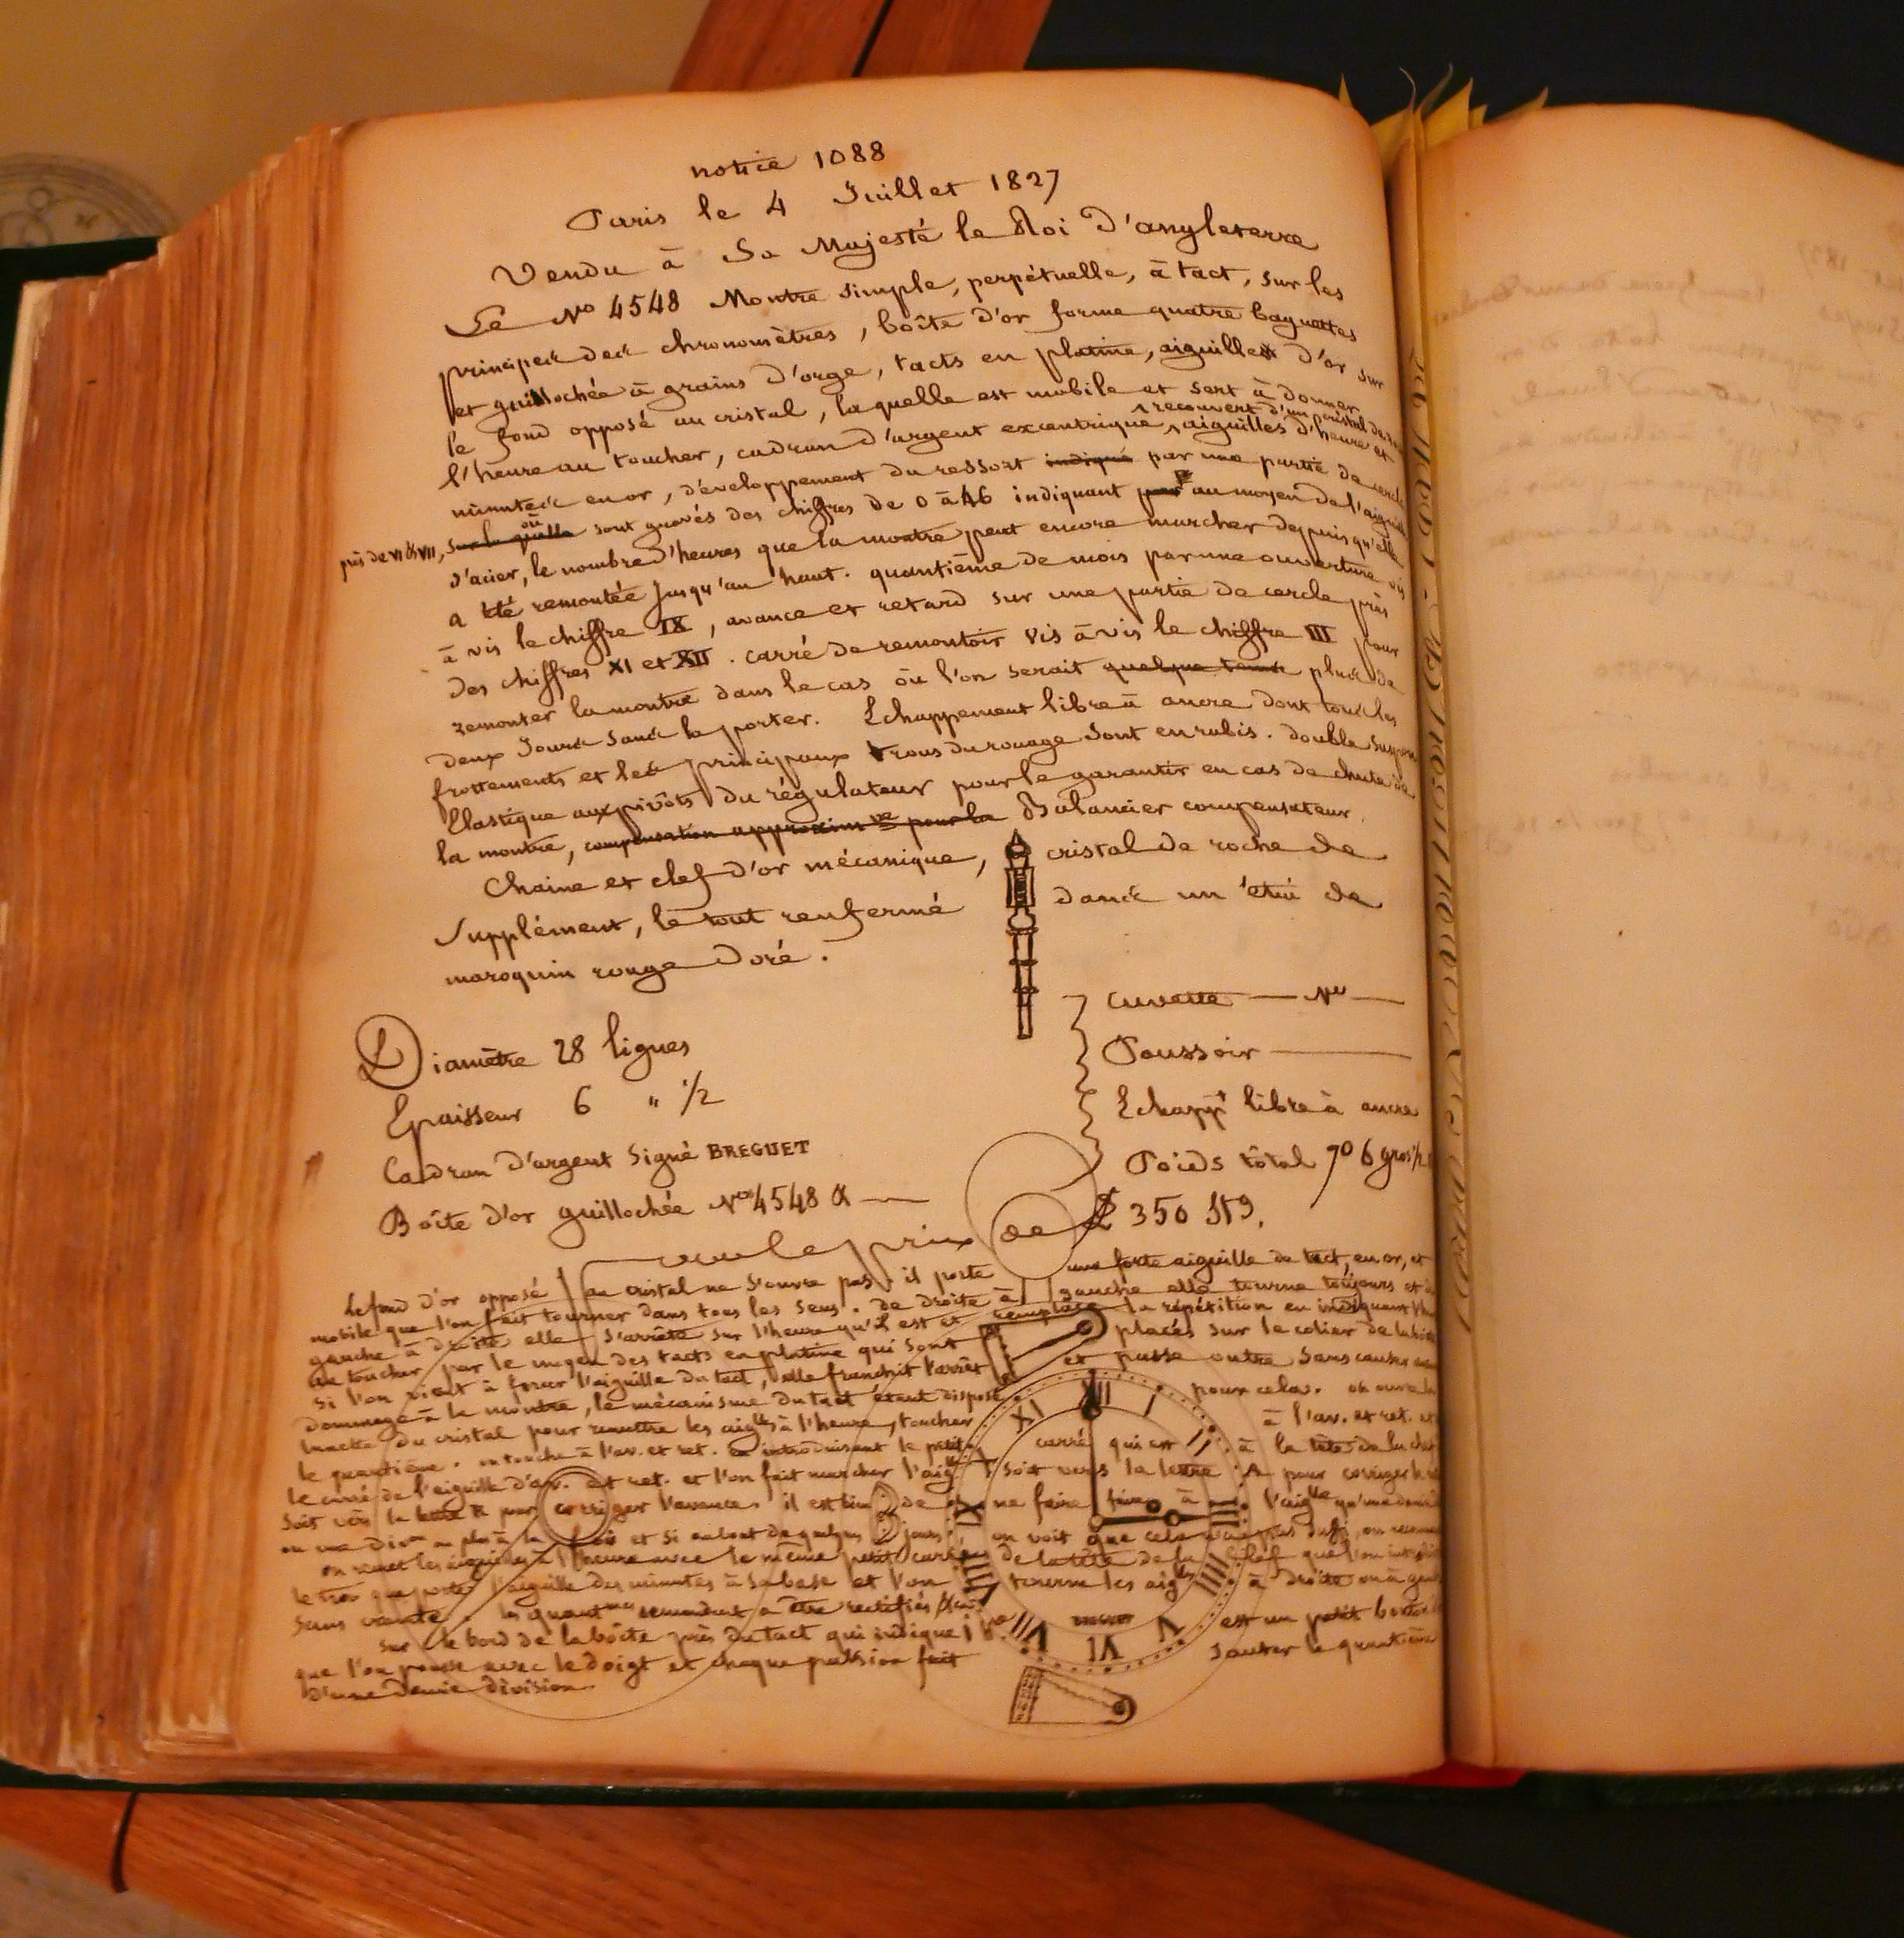 notice 1088
Paris le 4 Juillet 1827
Vendu à Sa Majesté le Roi D'angleterre
Le No 4548 Montre simple, perpétuelle, à tact, sur les
principes des chronomètres, boîte d'or forme quatre baguettes
et guillochée à grains d'orge, tacts en platine, aiguille d'or sur
le fond opposé au cristal, laquelle est mobile et sert à donner
recouvert d'un cristal de
l'heure au toucher, cadran d'argent excentrique, aiguilles d'heure et
minutes en or, développement du ressort indiqué par une partie de cercle
près de VI & VII, sur la quelle où sont gravés des chiffres de 0 à 46 indiquant par au moyen de l'aiguille
d'acier, le nombre d'heures que la montre peut encore marcher depuis qu'elle
a été remontée jusqu'au haut. quantième de mois par une ouverture vis
à vis le chiffre IX, avance et retard sur une partie de cercle près
des chiffres XI et XII. carré de remontoir vis à vis le chiffre III pour
remonter la montre dans le cas où l'on serait quelque tems plus de
deux Jours sans la porter. Echappement libre à ancre dont tous les
frottements et les principaux trous du rouage sont en rubis. double suspen
Elastique aux pivôts du régulateur pour le garantir en cas de chute de
la montre, compensation approxim ve pour la Balancier compensateur.
Chaine et clef d'or mécanique, cristal de roche de
Supplément, le tout renfermé dans un étui de
maroquin rouge Doré.
Diamètre 28 lignes
Epaisseur 6 " 1/2
Cadran d'argent Signé BREGUET
Boîte d'or guillochée No 4548 &
cuvette — No —
Poussoir —
Echapt libre à ancre
Poids tôtal 7o 6 gros 1/2
pour le prix de £ 350 St9.
Le fond d'or opposé au cristal ne s'ouvre pas. il porte une forte aiguille de tact, en or, et
mobile que l'on fait tourner dans tous les sens. de droite à gauche elle tourne toujours et de
gauche à droite elle s'arrête sur l'heure qu'il est et remplace la répétition en indiquant l'heure
au toucher par le moyen des tacts en platine qui sont placés sur le colier de la boîte
Si l'on vient à forcer l'aiguille du tact, elle franchit l'arrêt et passe outre sans causer
dommage à la montre, le mécanisme du tact étant disposé pour cela. on ouvre la
lunette du cristal pour remettre les aiglles à l'heure, toucher à l'av. et ret. et
le quantième. on touche à l'av. et ret. en introduisant le petit carré qui est à la tête de la clef
le carré de l'aiguille d'av. et ret. et l'on fait marcher l'aiglle soit vers la lettre A pour corriger le
Soit vers la lettre R pour corriger l'avance. il est bon de ne faire faire à l'aiglle qu'une demie
ou une divon au plus à la fois et si au bout de quelques jours, on voit que cela n'ait pas suffi, on
on remet les aiguilles à l'heure avec le même petit carré de la tête de la clef que l'on introduit
le trou que porte l'aiguille des minutes à sa base et l'on tourne les aiglles à droite ou à gauche
sans crainte. les quantmes demandent à être rectifiés
sur le bord de la boîte près du tact qui indique est un petit bouton
que l'on pousse avec le doigt et chaque pulsion fait sauter le quantième
d'une demie division.
XII
I
II
III
IIII
V
VI
VII
VIII
IX
XI